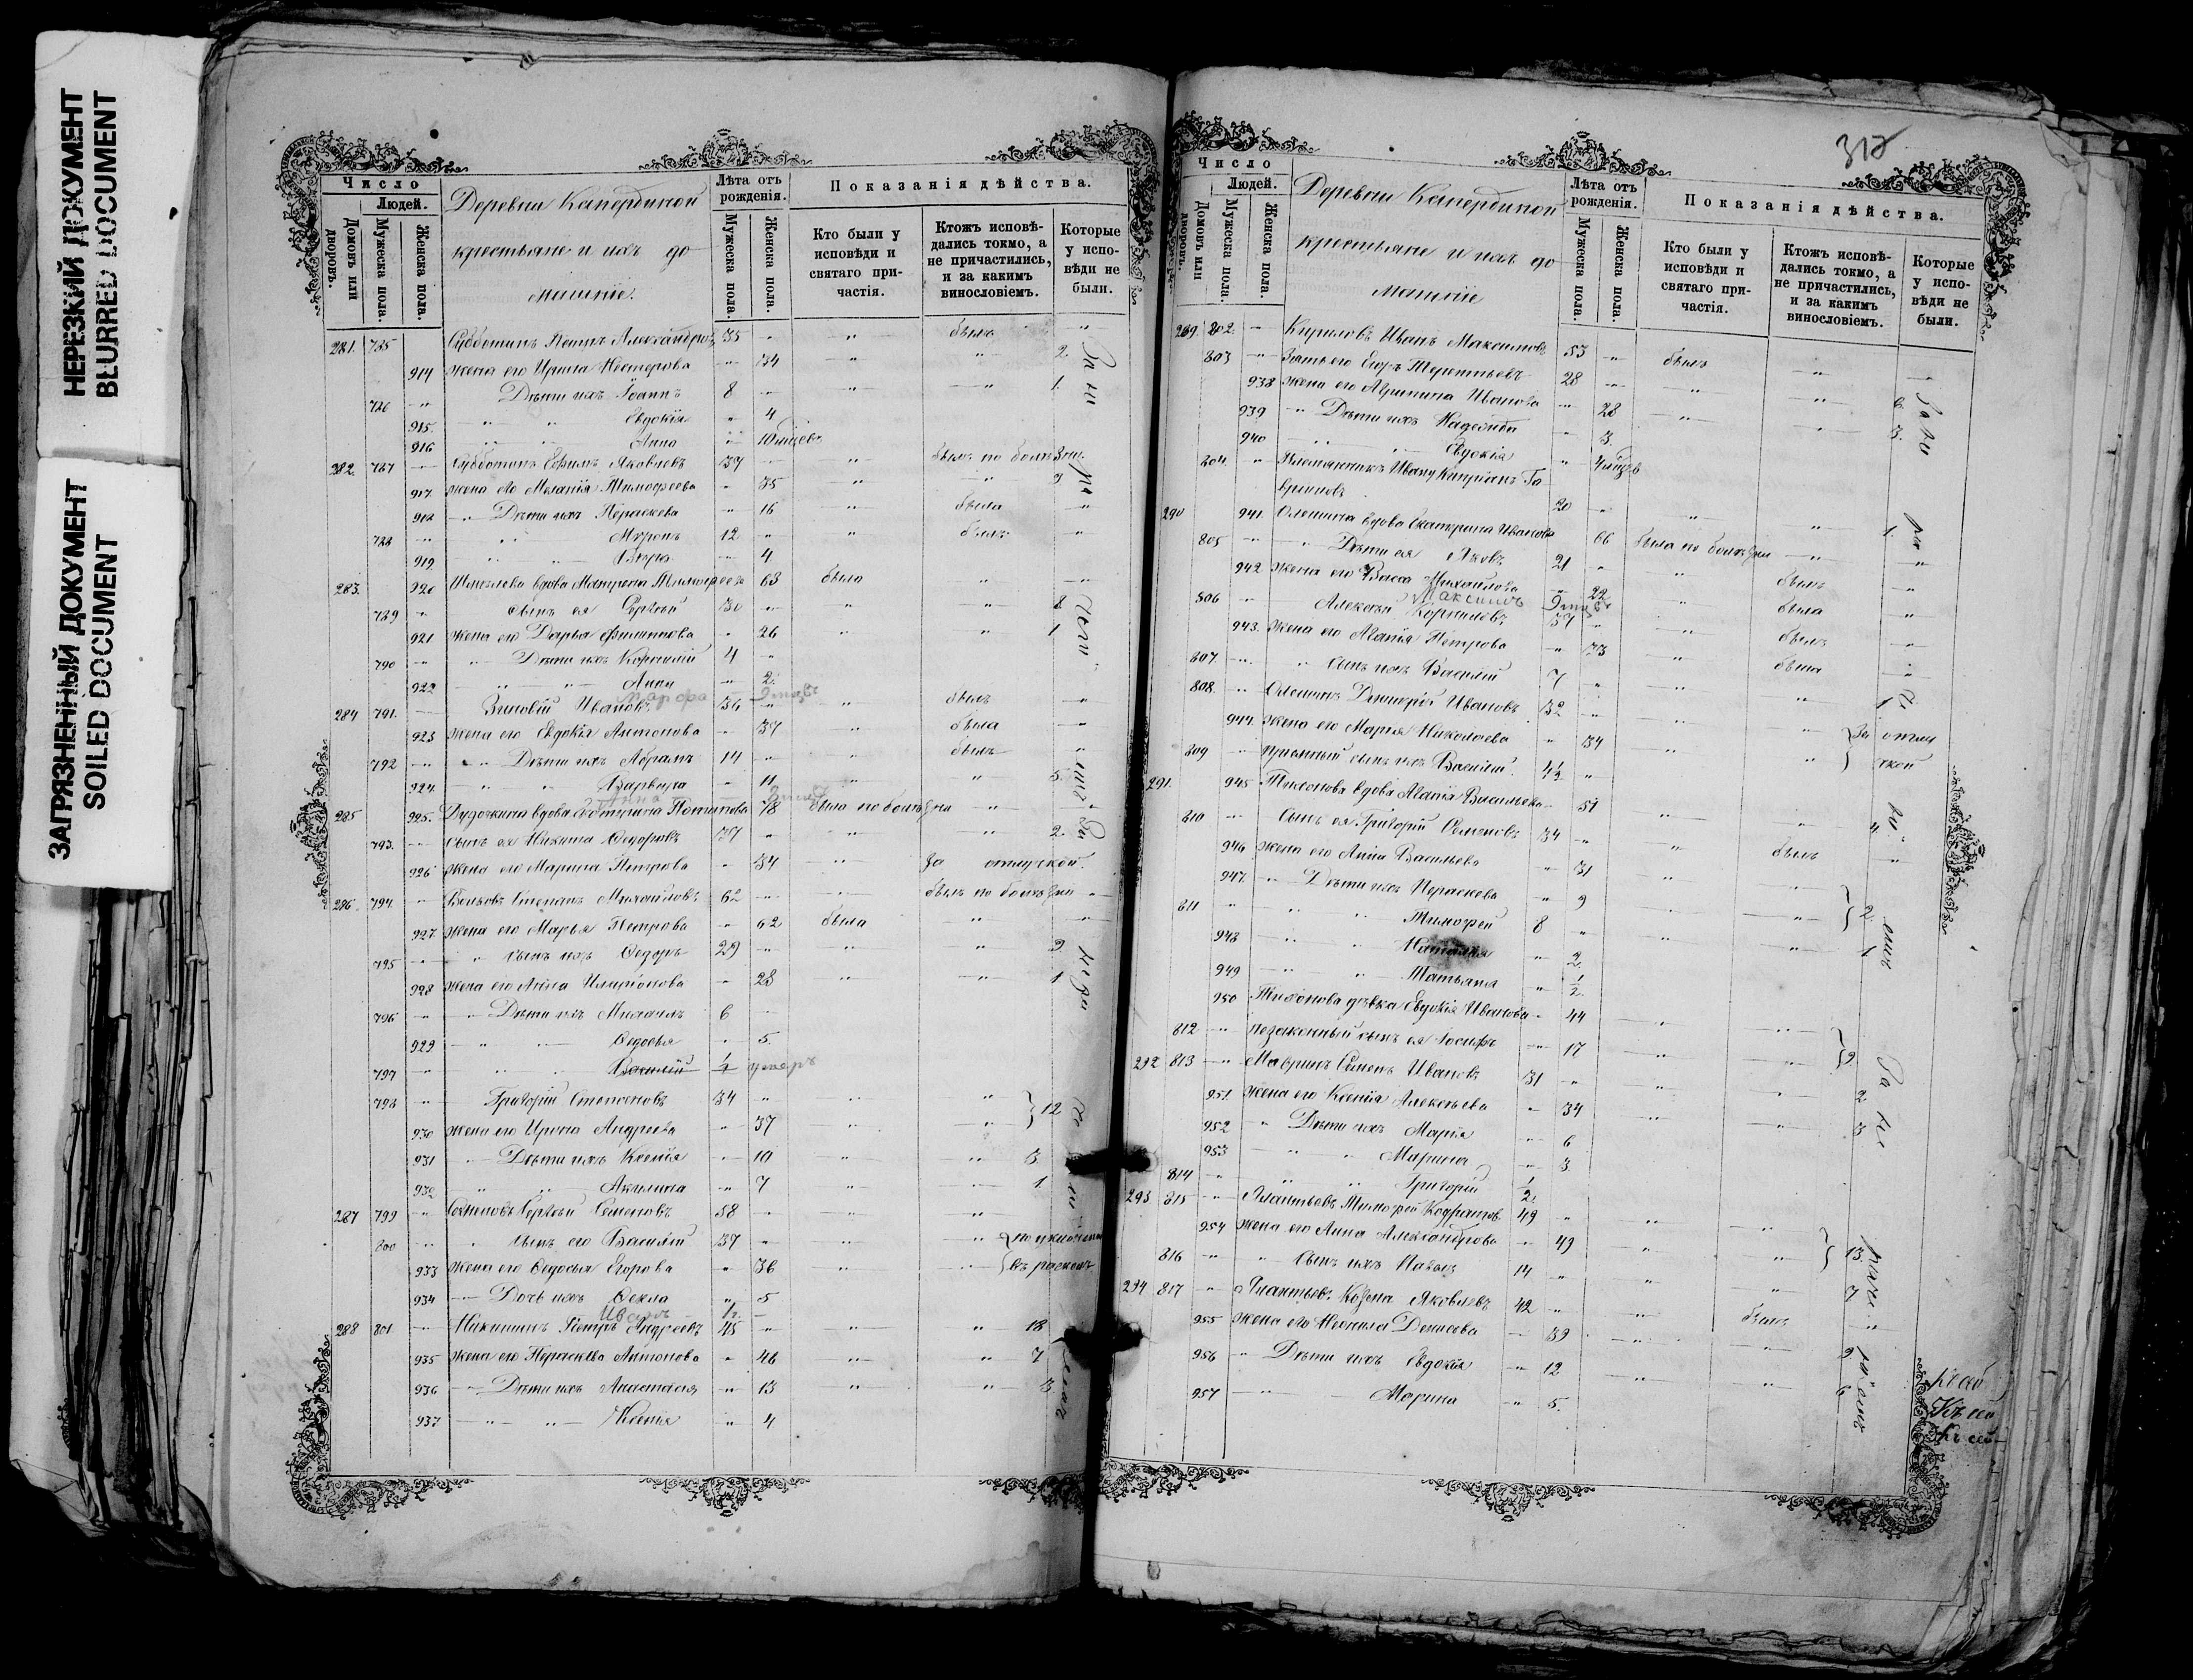 НЕРЕЗКИЙ ДОКУМЕНТ
BLURRED DOCUMENT
ЗАГРЯЗНЕННЫЙ ДОКУМЕНТ
SOILED DOCUMENT
Число
Людей.
Домовъ или дворовъ.
Мужеска пола.
Женска пола.
Деревни Капердиной
крестьяне и ихъ до
машніе.
Лѣта отъ рожденія.
Мужеска пола.
Женска пола.
Показанія дѣйства.
Кто были у исповѣди и святаго причастія.
Ктожъ исповѣдались токмо, а не причастились, и за какимъ винословіемъ.
Которые у исповѣди не были.
281. 785 Субботинъ Петръ Александровъ 35 " " была "
914 жена его Ирина Нестерова " 34 " " 2
786 " Дѣти ихъ Іоаннъ 8 " " " 1.
915. " " Евдокія " 4
916 " " Анна " 10 мѣсев
282. 787 Субботинъ Ефимъ Яковлевъ 39 " " былъ по болѣзни
917. жена его Меланія Тимофеева " 35 " " 9
918 " Дѣти ихъ Параскева " 16 " была "
788 " " Миронъ 12 " " былъ "
919 " " Вѣра " 4
283. 920 вдова Матрена Тимофеева 68 была " "
789 " сынъ ея Сергѣй 30 " " "
921 жена его Дарья Филиппова " 26 " " 1
790 " " Дѣти ихъ Корнилій 4 "
922 " " Анна " 2.
Марфа 9 мѣсв
284 791. Зиновій Ивановъ 36 " " былъ "
923 жена его Евдокія Антонова " 37 " была "
792 " " Дѣти ихъ Абрамъ 14 " " былъ "
924 " " Варвара " 11 " " 5.
Анна 3 мѣсв
285 925. Дудочкина вдова Екатерина Потапова 78 была по болѣзни "
793. " сынъ ея Никита Ѳедоровъ 37 " " " 2.
926 жена его Марина Петрова " 34 " За отлучкой.
286. 794. " Волковъ Степанъ Михайловъ 62 " " былъ по болѣзни "
927. жена его Марья Петрова " 62 была " "
795 " " сынъ ихъ Ѳедоръ 29 " " " 9
928 жена его Анна Иларіонова " 28 " " 1
796 " " Дѣти ихъ Михаилъ 6 "
929 " " Ѳедосья " 5.
797 " " Василій 1/2 умеръ
798 " Григорій Степановъ 34 " " " } 12
930 жена его Ирина Андреева " 37 " "
931 " Дѣти ихъ Ксенія " 10 " " 3.
932 " " Акилина " 7 " " 1.
287 799 " Сергѣй Семеновъ 58 " " "
800 " " сынъ его Василій 37 " " " по уклоненію
933 жена его Ѳедосья Егорова " 36 " " въ расколъ
934 " Дочь ихъ Ѳекла " 5
Иванъ 1/2
288 801. " Никитинъ Петръ Андреевъ 45 " " " 18
935 жена его Параскева Антонова " 46 " " 7
936 " Дѣти ихъ Анастасія " 13 " " 3
937 " " Ксенія " 4
317
Число
Людей.
Домовъ или дворовъ.
Мужеска пола.
Женска пола.
Деревни Капердиной
крестьяне и ихъ до
машніе
Лѣта отъ рожденія.
Мужеска пола.
Женска пола.
Показанія дѣйства.
Кто были у исповѣди и святаго причастія.
Ктожъ исповѣдались токмо, а не причастились, и за какимъ винословіемъ.
Которые у исповѣди не были.
289. 802. " Кириловъ Иванъ Максимовъ 53 " былъ " "
803 " Зять его Егоръ Терентьевъ 28 " " " 6.
938 жена его Агрипина Иванова " 28 " " 3.
939 " Дѣти ихъ Надежда " 3.
940 " " Евдокія " 4 мѣсв
804. " Племянникъ Ивану Кипріанъ Га
вриловъ 20 " " " 1.
290 941. Оленина вдова Екатерина Иванова 66 была по болѣзни " "
805 " " Дѣти ея Яковъ 21 " " былъ "
942 жена его Васса Михайлова " 22 " была "
Максимъ 9 мѣсв
806 " Алексѣй Корниловъ 37 " " былъ "
943. жена его Аганія Петрова " 33 " была "
807. " " сынъ ихъ Василій 7 " " " 1
808. " Оленинъ Дмитрій Ивановъ 32 " " " } За отлуч
944 жена его Марья Николаева " 34 " " } ткой
809 " пріемный сынъ ихъ Василій. 4 1/2 "
291. 945 Тихонова вдова Аганія Васильева " 51 " " 4.
810 " Сынъ ея Григорій Семеновъ 34 " " былъ "
946 жена его Анна Васильева " 31 " " } 2
947. " Дѣти ихъ Параскева " 9 " " 1
811 " " " Тимофей 8 "
948 " " Наталья " 2.
949 " " Татьяна " 1/2
950 Тихонова дѣвка Евдокія Иванова " 44 " " } 9
812 " незаконный сынъ ея Іосифъ " 17 " "
292 813 " Мавринъ Семенъ Ивановъ 31 " " " 2
951 жена его Ксенія Алексѣева " 34 " " 3
952 " Дѣти ихъ Марія " 6
953 " " Марина " 3.
814 " " Григорій 1/2.
293 815 " Тимофей 49 " " " } 13.
954 жена его Анна Александрова " 49 " "
816 " " Сынъ ихъ Павелъ 14 " " " 7
294 817 " Козма Яковлевъ 42 " " былъ "
955 жена его Неонила Денисова " 39 " " 9
956 " Дѣти ихъ Евдокія " 12 " " 6
957 " " Марина " 5.